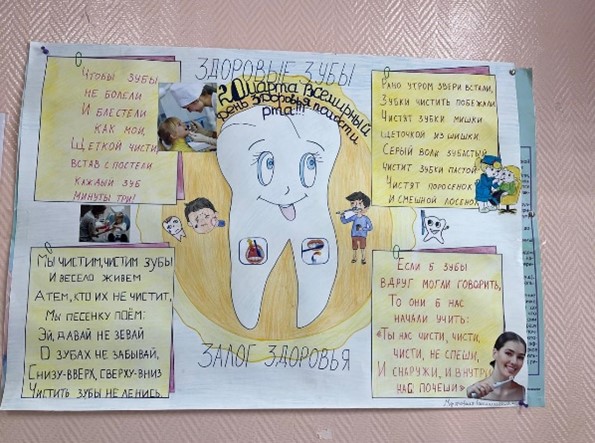 ЗДОРОВЫЕ ЗУБЫ
20 марта Всемирный
день здоровья полости
рта!!!
Чтобы зубы
не болели
И блестели
как мои,
Щеткой чисти,
встав с постели
каждый зуб
минуты три!
Рано утром звери встали,
Зубки чистить побежали.
Чистят зубки мишки
щёточкой из шишки.
Серый волк зубастый
чистит зубки пастой.
Чистит поросёнок
И смешной лосёнок.
Мы чистим, чистим зубы
И весело живем
А тем, кто их не чистит,
Мы песенку поём:
Эй, давай не зевай
О зубах не забывай,
Снизу-вверх, сверху-вниз
Чистить зубы не ленись.
Если б зубы
вдруг могли говорить,
То они б нас
начали учить:
«Ты нас чисти, чисти,
чисти, не спеши,
И снаружи, и внутри
нас почеши»
ЗАЛОГ ЗДОРОВЬЯ